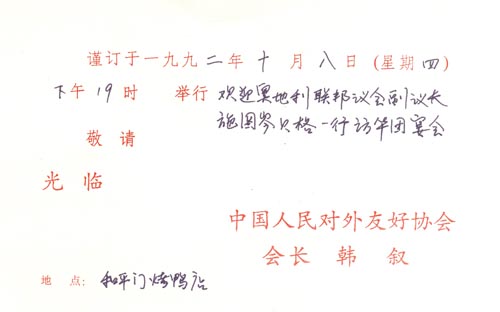 谨订于一九九二年十月八日(星期四)
下午19时 举行 欢迎奥地利联邦议会副议长
施图岑贝格一行访华团宴会
敬请
光临
中国人民对外友好协会
会长 韩叙
地点: 和平门烤鸭店